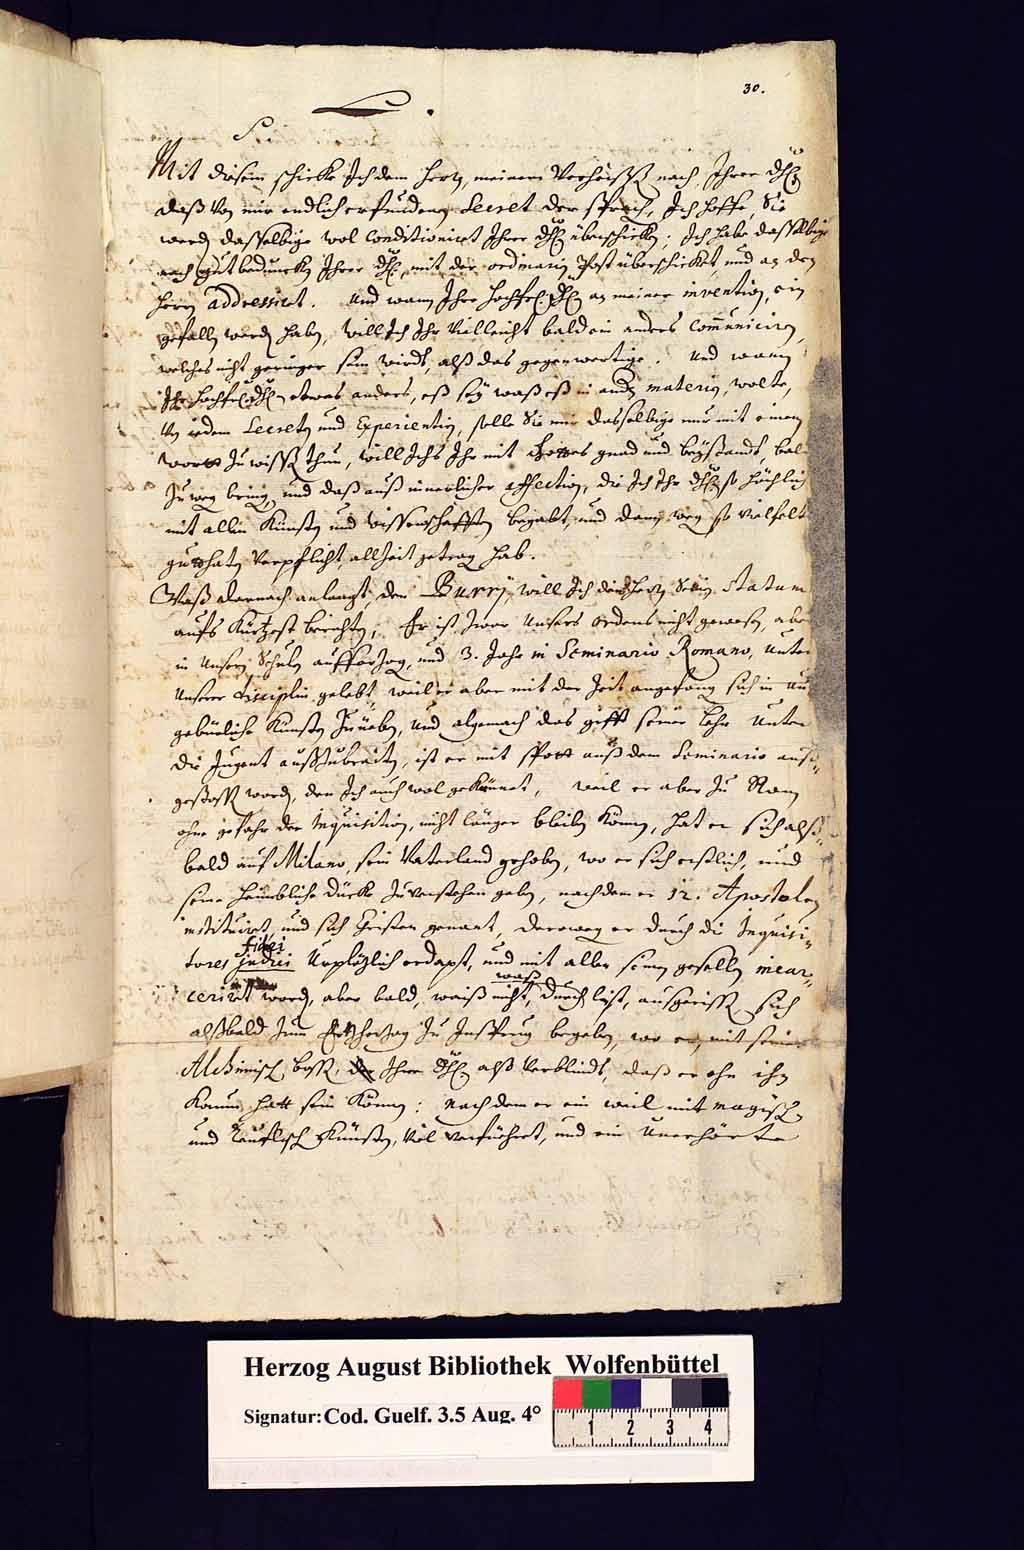 30.
Mit diesem schicke Ich dem Herrn, meinem Verheißß nach, Ihrer Dhl.
daß von mir endlich erfundene Secret der sprach, Ich hoffe, Sie
werd dasselbige wol conditioniret Ihrer Dhl. überschicken; Ich habe dasselbige
nach gutbeduncken Ihrer Dhl. mit der ordinarij Post überschicket, und an den
Herrn addressiret. Und wann Ihre Hochfl. Dhl. an meiner invention, ein
gefallen werden haben, will Ich Ihr vielleicht bald ein anders communiciren,
welches nicht geringer sein wirdt, alß das gegenwertige. Und wann
Ihr Hochfl. Dhl. etwas anders, eß sey waß eß in andern materien, wolte,
von iedem Secreten und Experientien, solle Sie mir dasselbige nur mit einem
wortt zu wissen thun, will Ichs Ihr mit Gottes gnad und beystandt, bald
zuweg bringen, und daß auß innerlicher affection, die Ich Ihr Dhl. so höchlich
mit allen Künsten und wissenschafften begabt, und denen wegen so vielfelt
gutthaten verpflicht, allzeit getragen hab.
Waß darnach anlangt, den Burrj, will Ich dem Herrn Sein Statum
aufs kürzest berichten; Er ist zwar Unsers ordens nicht gewesen, aber
in Unsern Schulen aufferzogen, und 3. Jahr in Seminario Romano, unter
Unserer disciplin gelebt, weil er aber mit der Zeit angefangen sich in un
gebürliche Künsten zu üben, und algemach das gifft seiner Lehr unter
die Jugent außzubreiten, ist er mit spott auß dem Seminario auß-
gestossen worden, den Ich auch wol gekennet, weil er aber zu Rom
ohne gefahr der Inquisition, nicht länger bleiben können, hat er sich alß-
bald auf Milano, sein Vaterland gehoben, wo er sich erstlich, und
seine heimbliche dücke zu verstehen geben, nachdem er 12. Apostolen
instituiret, und sich Christen genant, derowegen er durch die Inquisi-
fidei
tores judici Urplözlich erdapt, und mit allen seinen gesellen incar-
ceriret worden, aber bald, waiß nicht, durch waß list, außgerissen sich
alßbald zum Ertzherzog zu Insprug begeben, wo er, mit seinen
Alchimisch. possen, Ihrer Dhl. alß verblindt, daß er ohn ihn
kaum hatt sein können: nach dem er ein weil mit magisch.
und teuflisch Künsten, viel verführet, und ein Unerhörte
Herzog August Bibliothek Wolfenbüttel
Signatur: Cod. Guelf. 3.5 Aug. 4°
1 2 3 4